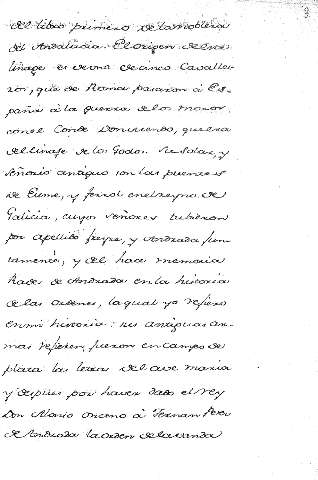 del libro primero de la nobleza
del Andaluzia. El origen de este
linage es de uno de cinco Cavalle-
ros, que de Roma pasaron á Es-
paña á la guerra de los moros
con el Conde Don Mendo, que era
del linage de los Godos. Su Solar, y
Señorio antiguo son las puentes
de Eume, y ferrol en el reyno de
Galicia, cuyos señores tubieron
por apellido freyre, y Andrada jun-
tamente, y del hace memoria
Rades de Andrada en la historia
de las ordenes, la qual yo refiero
en mi historia: sus antiguas ar-
mas refieren, fueron en campo de
plata las letras del ave maria
y despues por haver dado el rey
Don Alonso onceno á Fernan Perez
de Andrada la orden de la vanda